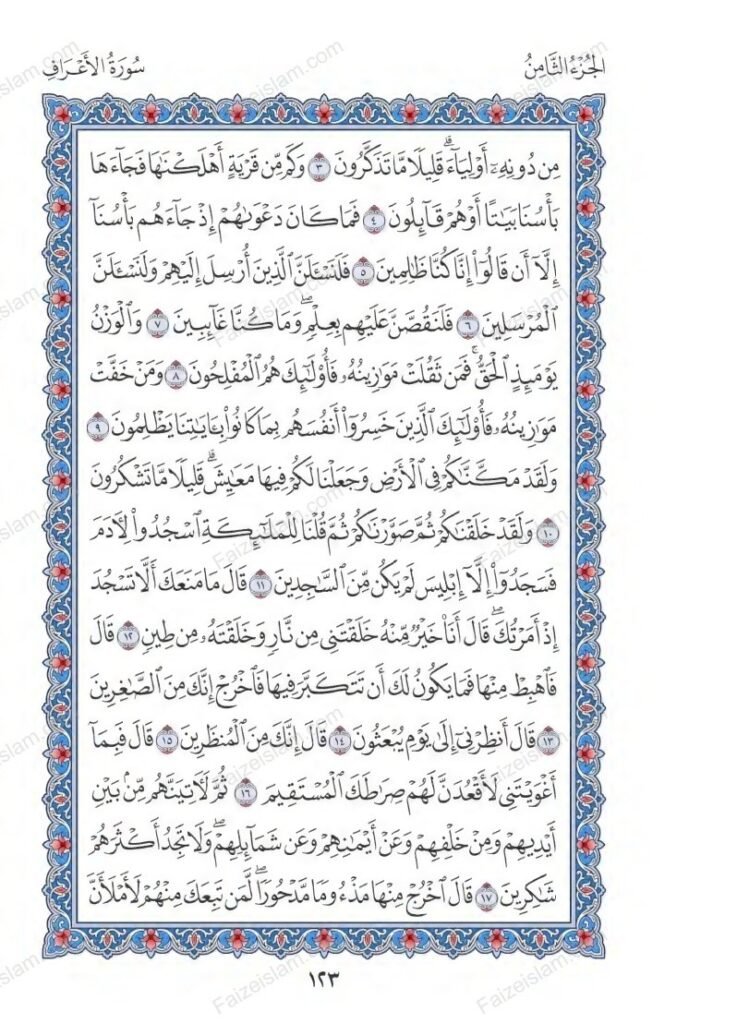 الجُزْءُ الثَّامِنُ
سُورَةُ الأَعْرَافِ
مِن دُونِهِۦٓ أَوْلِيَآءَۗ قَلِيلًا مَّا تَذَكَّرُونَ ٣ وَكَم مِّن قَرْيَةٍ أَهْلَكْنَٰهَا فَجَآءَهَا
بَأْسُنَا بَيَٰتًا أَوْ هُمْ قَآئِلُونَ ٤ فَمَا كَانَ دَعْوَىٰهُمْ إِذْ جَآءَهُم بَأْسُنَآ
إِلَّآ أَن قَالُوٓا۟ إِنَّا كُنَّا ظَٰلِمِينَ ٥ فَلَنَسْـَٔلَنَّ ٱلَّذِينَ أُرْسِلَ إِلَيْهِمْ وَلَنَسْـَٔلَنَّ
ٱلْمُرْسَلِينَ ٦ فَلَنَقُصَّنَّ عَلَيْهِم بِعِلْمٍۖ وَمَا كُنَّا غَآئِبِينَ ٧ وَٱلْوَزْنُ
يَوْمَئِذٍ ٱلْحَقُّۚ فَمَن ثَقُلَتْ مَوَٰزِينُهُۥ فَأُو۟لَٰٓئِكَ هُمُ ٱلْمُفْلِحُونَ ٨ وَمَنْ خَفَّتْ
مَوَٰزِينُهُۥ فَأُو۟لَٰٓئِكَ ٱلَّذِينَ خَسِرُوٓا۟ أَنفُسَهُم بِمَا كَانُوا۟ بِـَٔايَٰتِنَا يَظْلِمُونَ ٩
وَلَقَدْ مَكَّنَّٰكُمْ فِى ٱلْأَرْضِ وَجَعَلْنَا لَكُمْ فِيهَا مَعَٰيِشَۗ قَلِيلًا مَّا تَشْكُرُونَ
١٠ وَلَقَدْ خَلَقْنَٰكُمْ ثُمَّ صَوَّرْنَٰكُمْ ثُمَّ قُلْنَا لِلْمَلَٰٓئِكَةِ ٱسْجُدُوا۟ لِـَٔادَمَ
فَسَجَدُوٓا۟ إِلَّآ إِبْلِيسَ لَمْ يَكُن مِّنَ ٱلسَّٰجِدِينَ ١١ قَالَ مَا مَنَعَكَ أَلَّا تَسْجُدَ
إِذْ أَمَرْتُكَۖ قَالَ أَنَا۠ خَيْرٌ مِّنْهُ خَلَقْتَنِى مِن نَّارٍ وَخَلَقْتَهُۥ مِن طِينٍ ١٢ قَالَ
فَٱهْبِطْ مِنْهَا فَمَا يَكُونُ لَكَ أَن تَتَكَبَّرَ فِيهَا فَٱخْرُجْ إِنَّكَ مِنَ ٱلصَّٰغِرِينَ
١٣ قَالَ أَنظِرْنِىٓ إِلَىٰ يَوْمِ يُبْعَثُونَ ١٤ قَالَ إِنَّكَ مِنَ ٱلْمُنظَرِينَ ١٥ قَالَ فَبِمَآ
أَغْوَيْتَنِى لَأَقْعُدَنَّ لَهُمْ صِرَٰطَكَ ٱلْمُسْتَقِيمَ ١٦ ثُمَّ لَـَٔاتِيَنَّهُم مِّنۢ بَيْنِ
أَيْدِيهِمْ وَمِنْ خَلْفِهِمْ وَعَنْ أَيْمَٰنِهِمْ وَعَن شَمَآئِلِهِمْۖ وَلَا تَجِدُ أَكْثَرَهُمْ
شَٰكِرِينَ ١٧ قَالَ ٱخْرُجْ مِنْهَا مَذْءُومًا مَّدْحُورًاۖ لَّمَن تَبِعَكَ مِنْهُمْ لَأَمْلَأَنَّ
١٢٣
Faizeislam.com